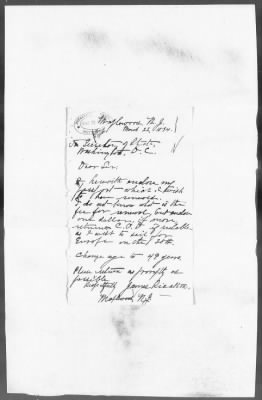 Maplewood N.J.
March 22, 1894.
To Secretary of State,
Washington, D.C.
Dear Sir,
I herewith enclose my
passport which I wish
to have renewed.
I do not know what is the
fee for renewal, but enclose
one dollar, if more
return C.O.D. if suitable
as I wish to sail for
Europe on the 28th.
Change age to 49 years
Please return as promptly as
possible
Respectfully James
Maplewood N.J.